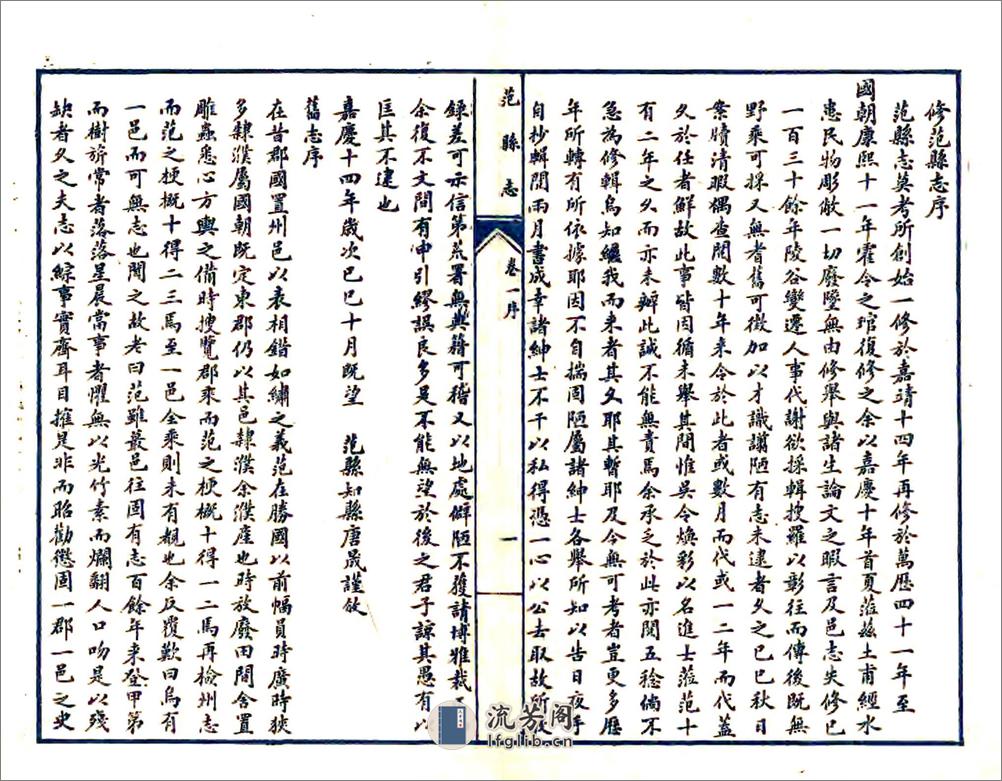 修范縣志序
范縣志莫考所創始一修於嘉靖十四年再修於萬歷四十一年至
國朝康熙十一年霍令之琯復修之余以嘉慶十年首夏蒞茲土甫經水
患民物彫敝一切廢墜無由修舉與諸生論文之暇言及邑志失修已
一百三十餘年陵谷變遷人事代謝欲採輯搜羅以彰往而傳後既無
野乘可採又無耆舊可徵加以才識譾陋有志未逮者久之己巳秋日
案牘清暇偶查閱數十年來令於此者或數月而代或一二年而代蓋
久於任者鮮故此事皆因循未舉其間惟吳令煥彩以名進士蒞范十
有二年之久而亦未辦此誠不能無責焉余承乏於此亦閱五稔倘不
急為修輯烏知繼我而來者其久耶其暫耶及今無可考者豈更多歷
年所轉有所依據耶因不自揣固陋屬諸紳士各舉所知以告日夜手
自抄輯閱兩月書成幸諸紳士不干以私得憑一心以公去取故所
錄差可示信第荒署無典籍可稽又以地處僻陋不獲請博雅裁
余復不文間有申引繆誤良多是不能無望於後之君子諒其愚有以
匡其不逮也
嘉慶十四年歲次己巳十月既望 范縣知縣唐晟謹敘
舊志序
在昔郡國置州邑以表相錯如繡之義范在勝國以前幅員時廣時狹
多隸濮屬國朝既定東郡仍以其邑隸濮余濮產也時放廢田間舍置
雕蟲悉心方輿之備時搜覽郡乘而范之梗概十得一二焉再檢州志
而范之梗概十得二三焉至一邑全乘則未有覩也余反覆歎曰烏有
一邑而可無志也間之故老曰范雖蕞邑往固有志百餘年來登甲第
而樹旂常者落落星晨當事者懼無以光竹素而爛翻人口吻是以殘
缺者久之夫志以綜事實齊耳目擁是非而昭勸懲固一郡一邑之史
范縣志
卷一序
一
流芳阁
lfglib.cn